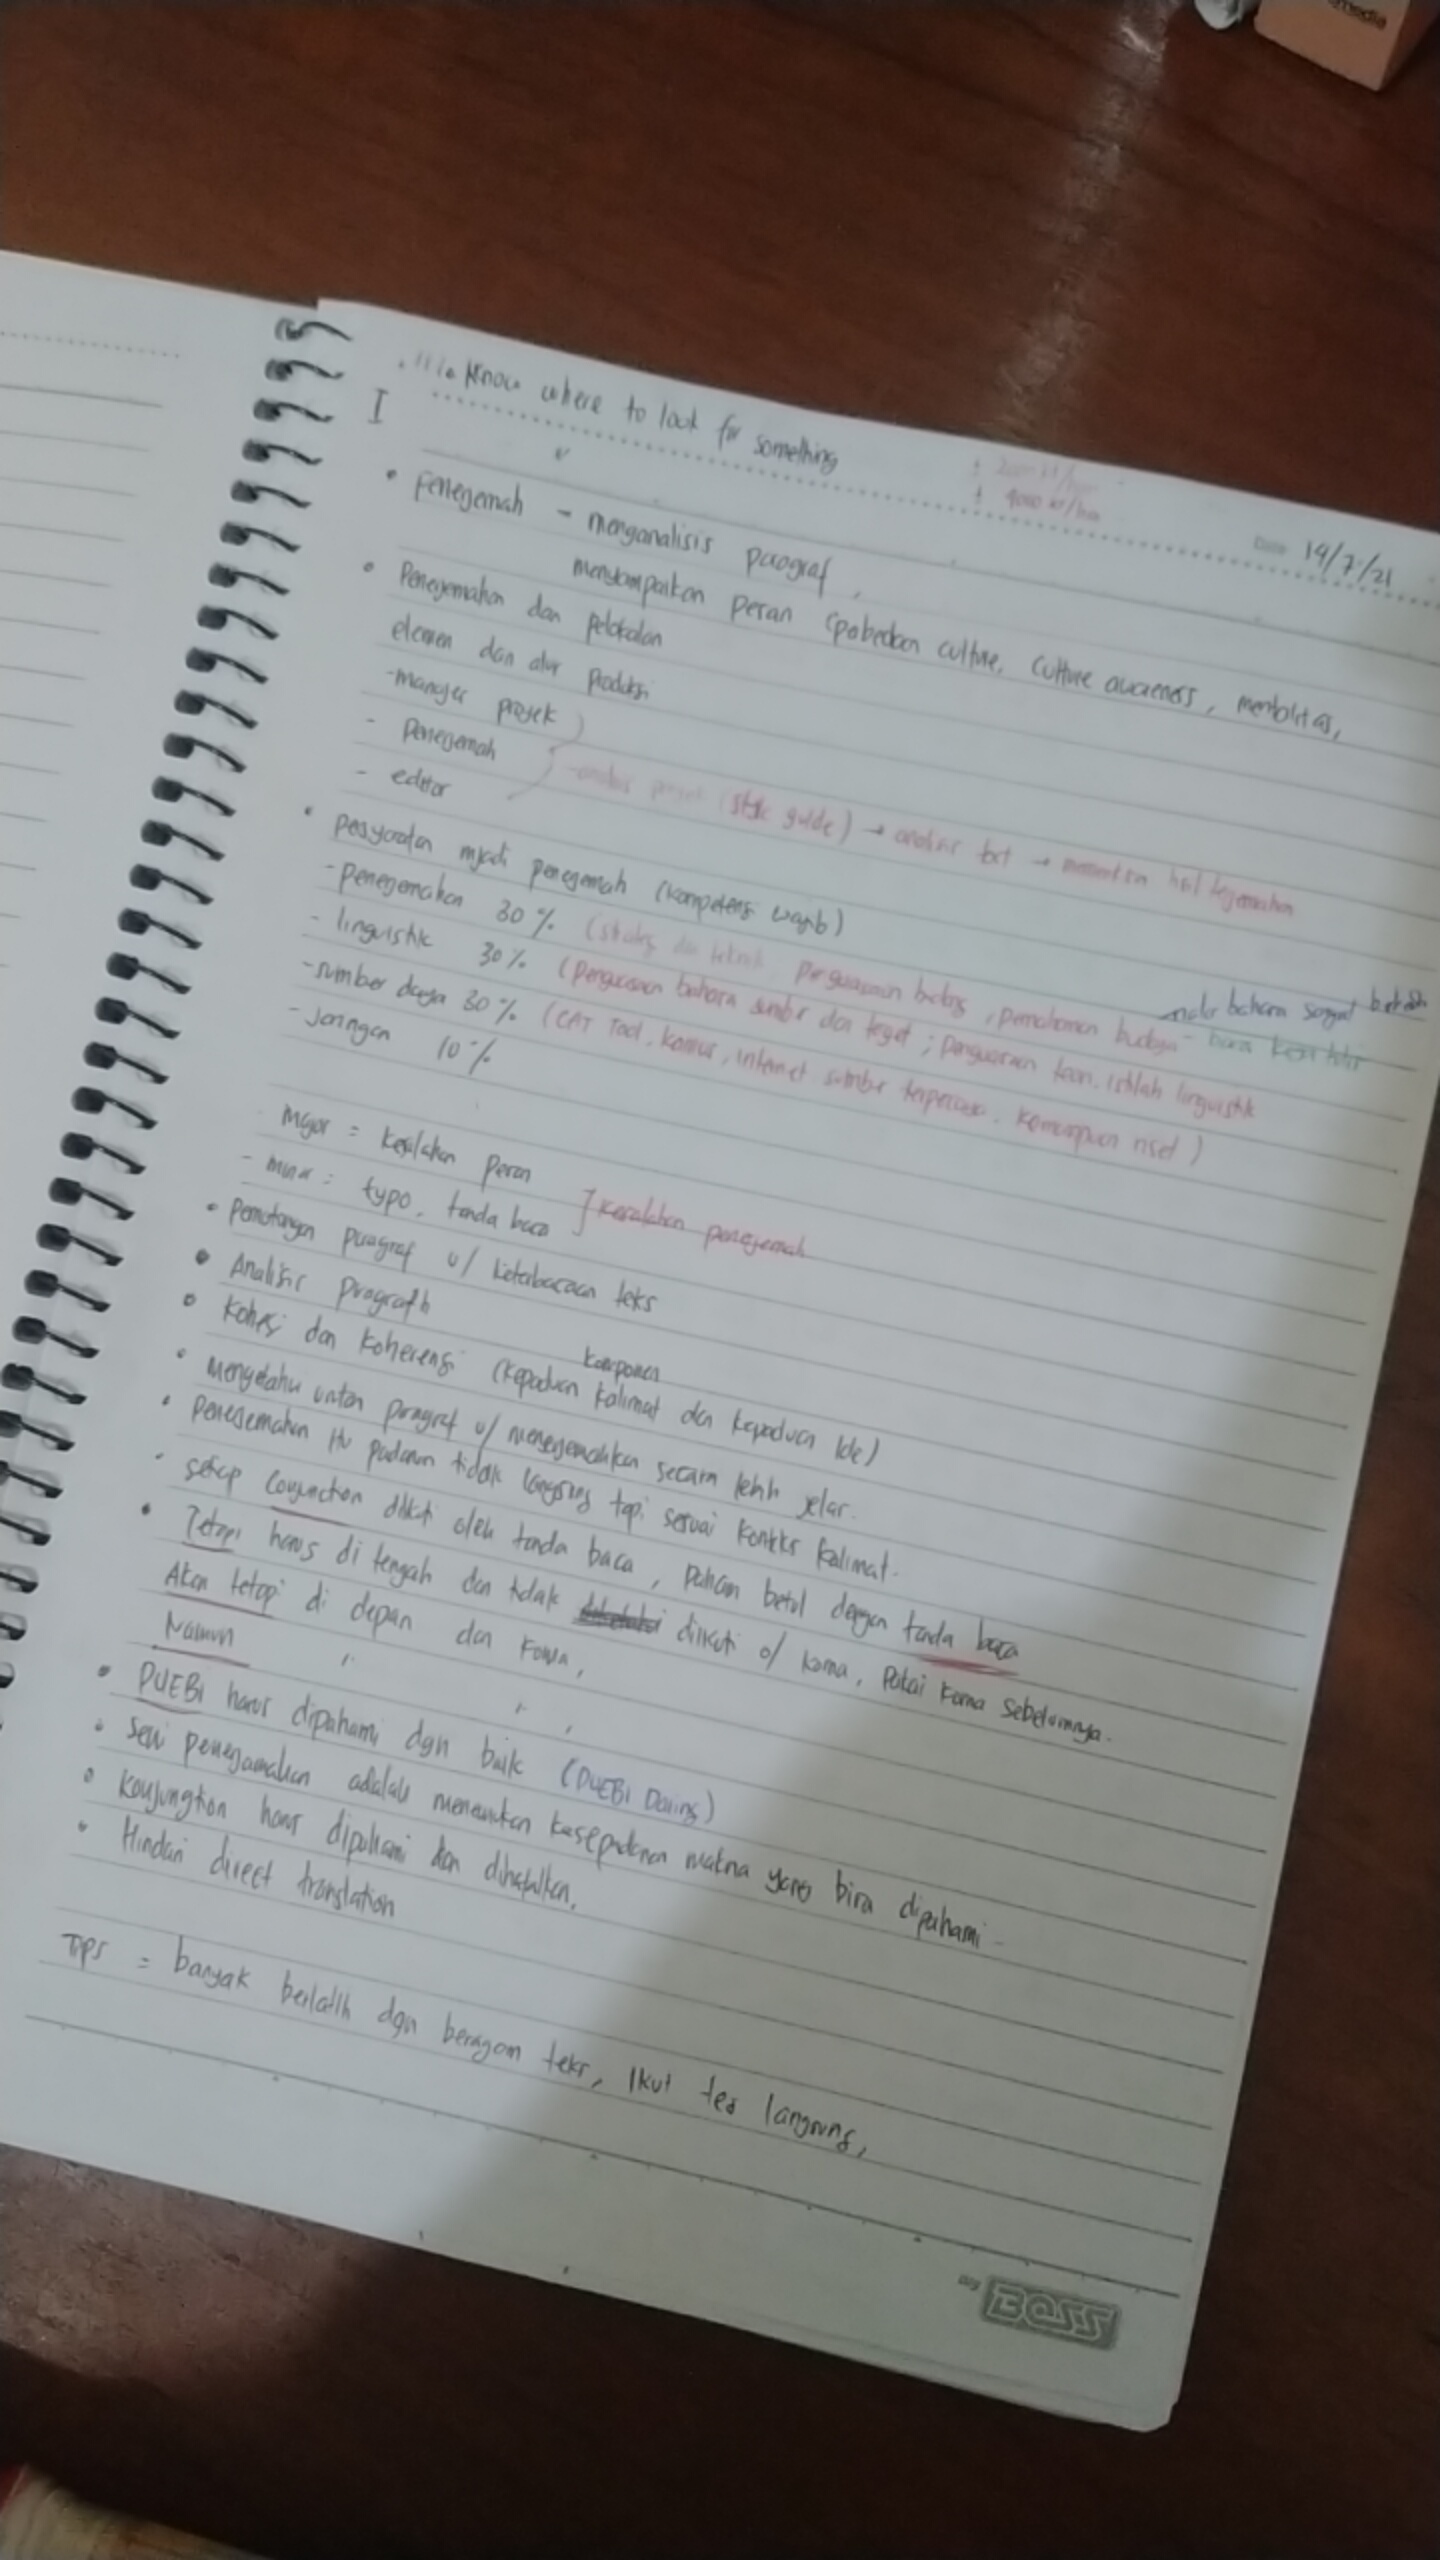 Know where to look for something
I
± 4000 kt/hari
Date 19/7/21
• Penerjemah - menganalisis paragraf,
menyampaikan pesan (perbedaan culture, culture awareness, mentalitas,
• Penerjemahan dan pelokalan
elemen dan alur produksi
- manajer proyek
- penerjemah
- editor
(style guide) → analisis text → menentukan hasil terjemahan
• persyaratan mjadi penerjemah (kompetensi wajib)
- penerjemahan 30% (strategi dan teknik, penguasaan bidang, pemahaman budaya
- linguistik 30% (penguasaan bahasa sumber dan target; penguasaan teori, istilah linguistik
- sumber daya 30% (CAT Tool, kamus, internet sumber terpercaya, kemampuan riset)
- Jaringan 10%
Major = kesalahan pesan
- minor = typo, tanda baca ] kesalahan penerjemah
• Pemotongan paragraf u/ keterbacaan teks
• Analisis Paragraph
komponen
• Kohesi dan koherensi (kepaduan kalimat dan kepaduan ide)
• mengetahui urutan paragraf u/ menerjemahkan secara lebih jelas.
• Penerjemahan itu padanan tidak langsung tapi sesuai konteks kalimat.
• setiap conjunction diikuti oleh tanda baca, paham betul dengan tanda baca
• Tetapi harus di tengah dan tidak diikuti o/ koma, pakai koma sebelumnya.
Akan tetapi di depan dan koma,
Namun " " ,
• PUEBI harus dipahami dgn baik (PUEBI Daring)
• Seni penerjemahan adalah menemukan kesepadanan makna yang bisa dipahami
• Konjungtion harus dipahami dan dihafalkan.
• Hindari direct translation
Tips = banyak berlatih dgn beragam teks, Ikut tes langsung,
BOSS